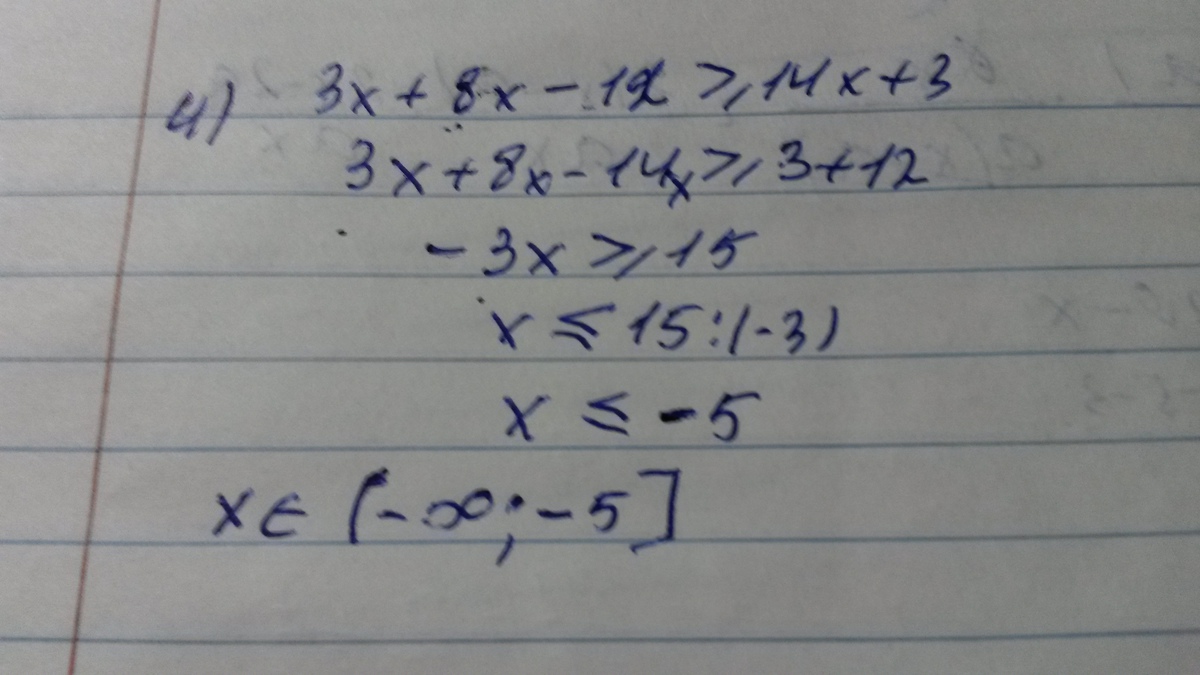 4) 3x + 8x - 12 ⩾ 14x + 3
3x + 8x - 14x ⩾ 3 + 12
- 3x ⩾ 15
x ≤ 15 : (-3)
x ≤ -5
x ∈ (-∞; -5]